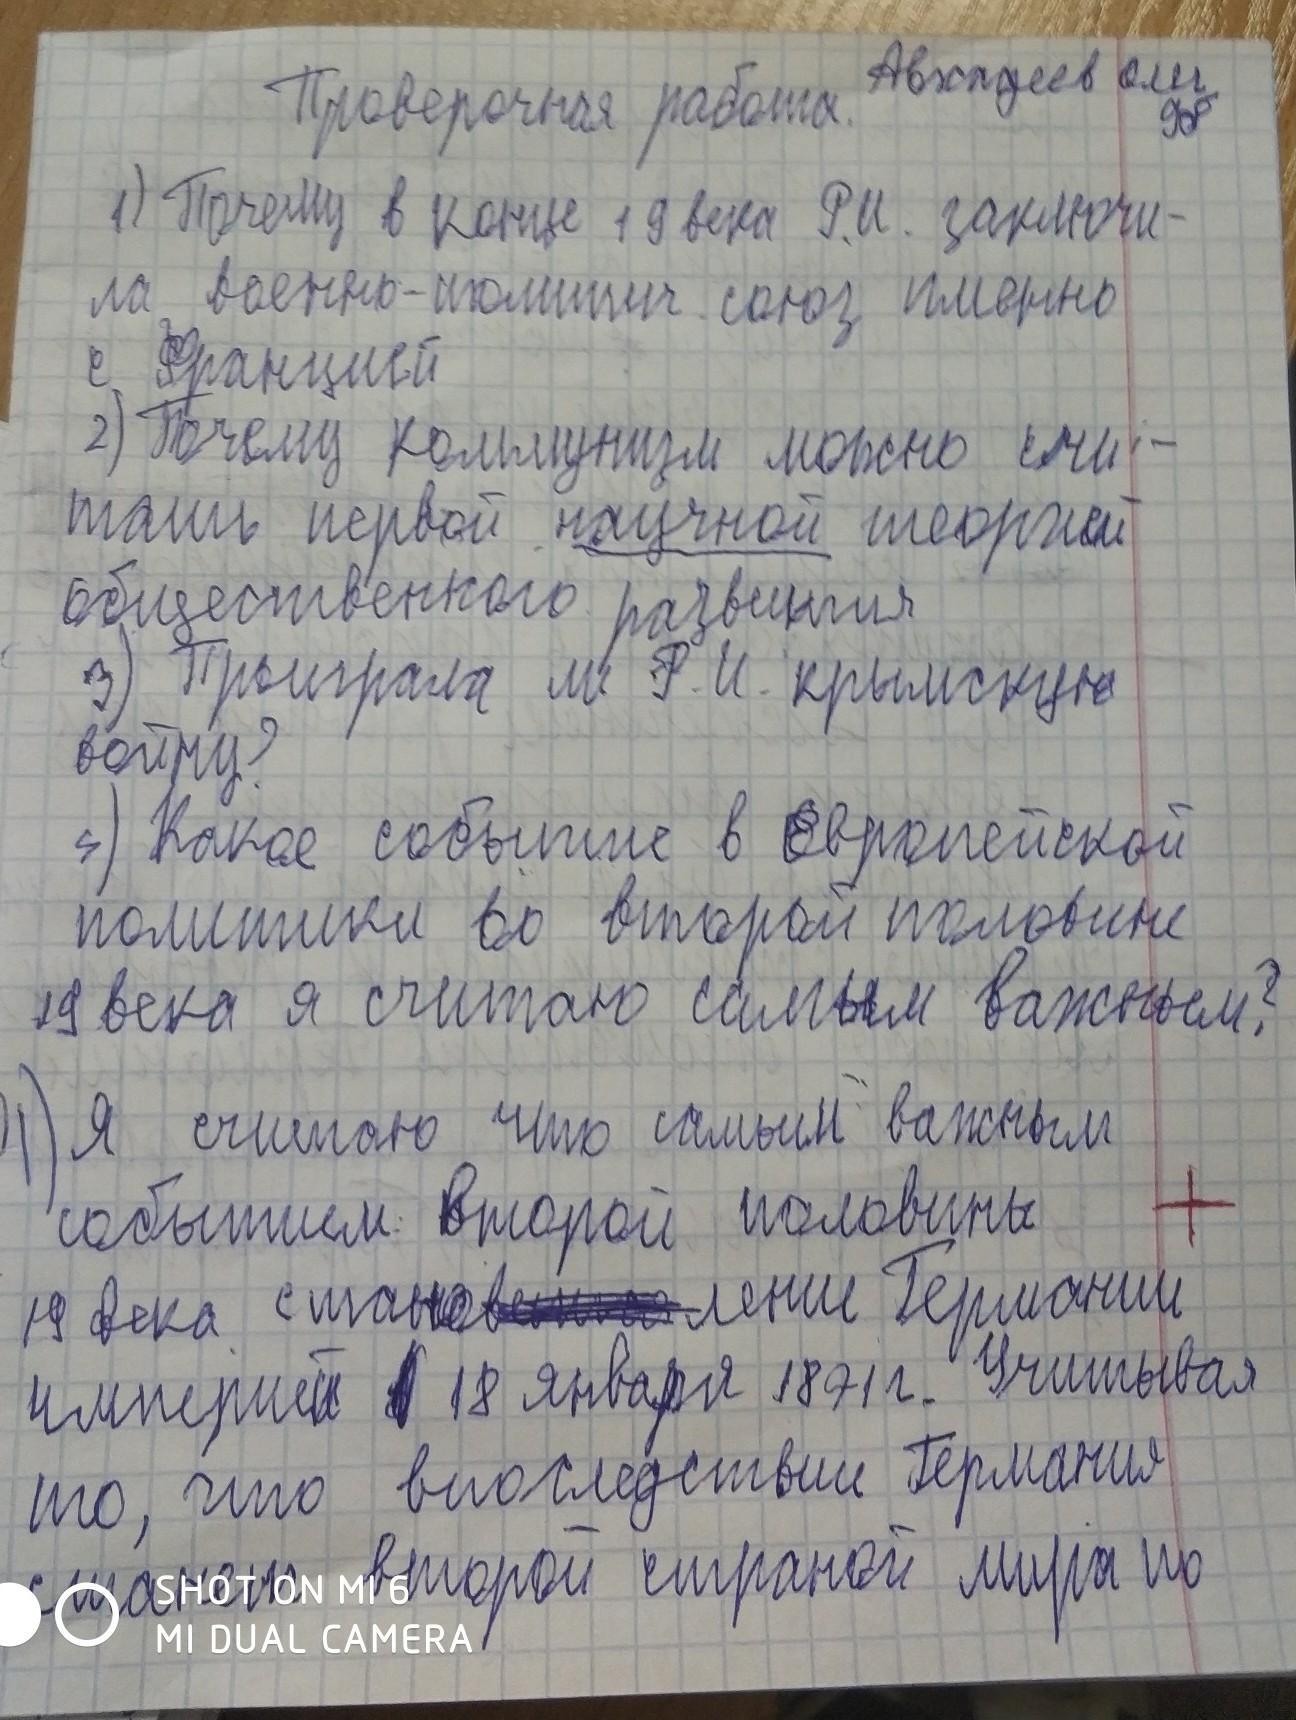 Проверочная работа. Авхадеев
9б
1) Почему в конце 19 века Р.И. заключи-
ла военно-политич. союз именно
с Францией
2) Почему коммунизм можно счи-
тать первой научной теорией
общественного развития
3) Проиграла ли Р.И. крымскую
войну?
4) Какое событие в Европейской
политики во второй половине
19 века я считаю самым важным?
1) Я считаю что самым важным
событием второй половины
19 века становление Германии
империей 18 января 1871 г. Учитывая
то, что впоследствии Германия
станет второй страной мира по
SHOT ON MI 6
MI DUAL CAMERA